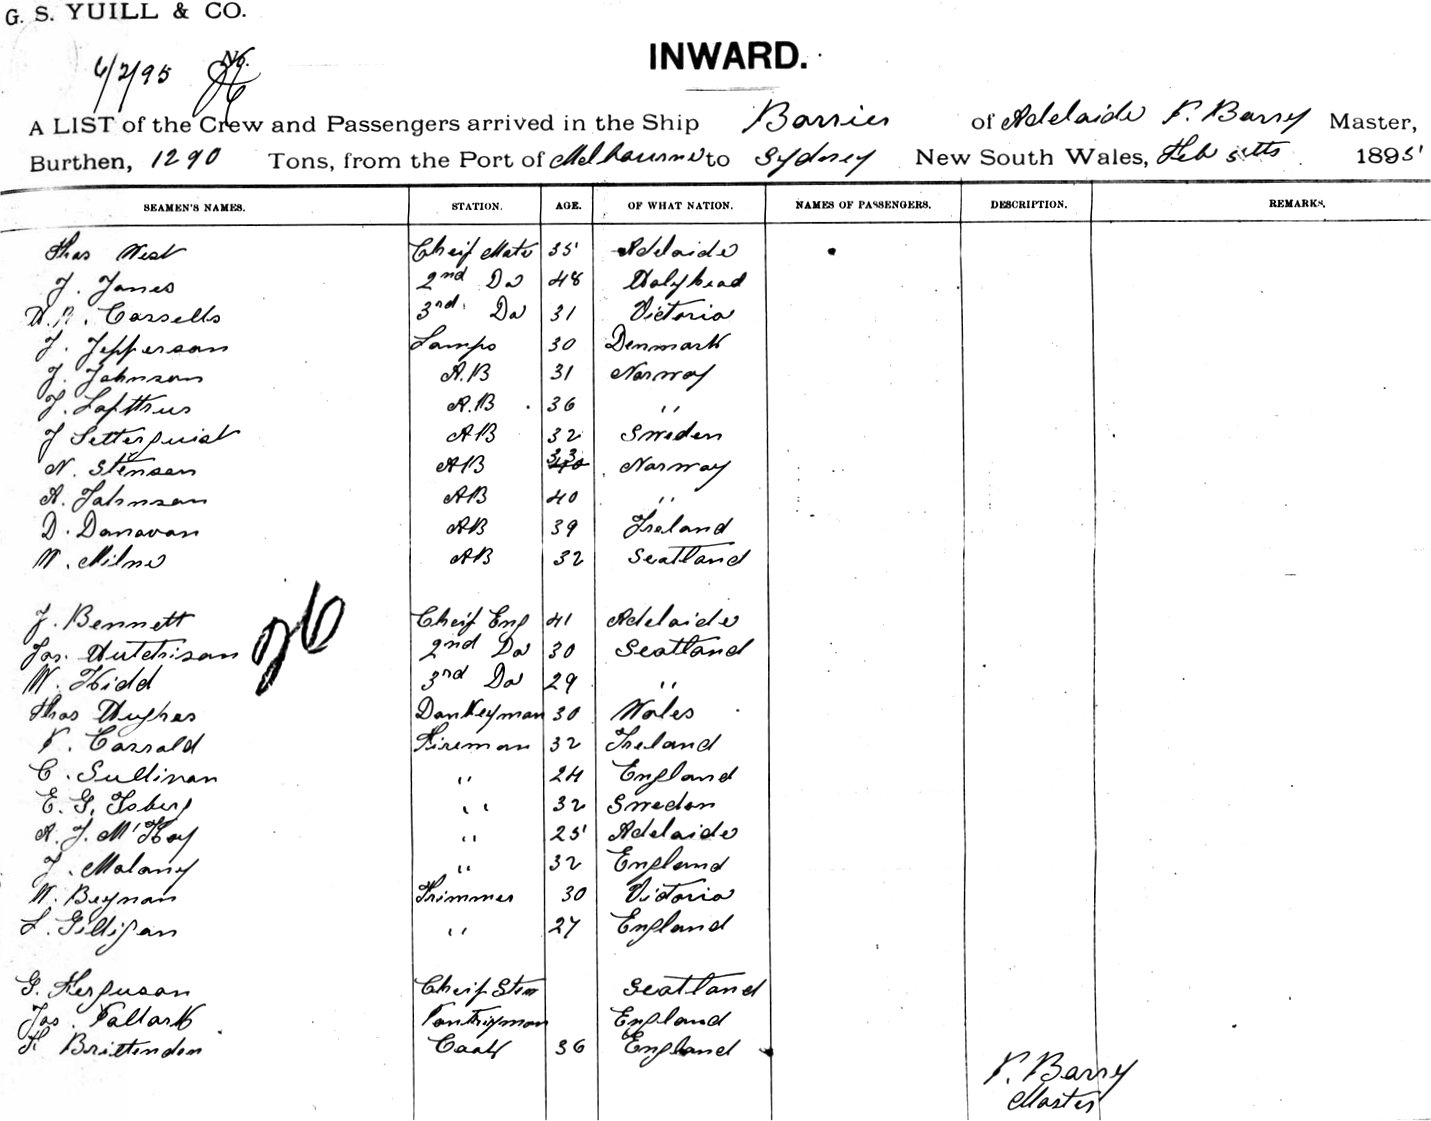 G. S. YUILL & CO.
6/2/95 No. 26
INWARD.
A LIST of the Crew and Passengers arrived in the Ship Barrier of Adelaide P. Barry Master,
Burthen, 1290 Tons, from the Port of Melbourne to Sydney New South Wales, Feb 5th 1895
SEAMEN'S NAMES. STATION. AGE. OF WHAT NATION. NAMES OF PASSENGERS. DESCRIPTION. REMARKS.
Thos West Cheif Mate 35 Adelaide
J. Jones 2nd Do 48 Holyhead
Cassells 3rd Do 31 Victoria
J. Jepperson Lamps 30 Denmark
J. Johnson A.B 31 Norway
J. Lofthus A.B 36 "
J Setterquist AB 32 Sweden
N. Stenson AB 33 Norway
A. Johnson AB 40 "
D. Donovan AB 39 Ireland
W. Milne AB 32 Scotland
26
J. Bennett Cheif Eng 41 Adelaide
Jas. Hutchison 2nd Do 30 Scotland
W. Kidd 3rd Do 29 "
Thos Hughes Donkeyman 30 Wales
P. Carrold Fireman 32 Ireland
C. Sullivan " 24 England
E. G. Isberg " 32 Sweden
A. J. McKoy " 25 Adelaide
J. Molony " 32 England
W. Beynon Trimmer 30 Victoria
L. Gilligan " 27 England
G. Ferguson Cheif Stew Scotland
Jas. Pollark Pantryman England
H Brittenden Cook 36 England
P. Barry
Master